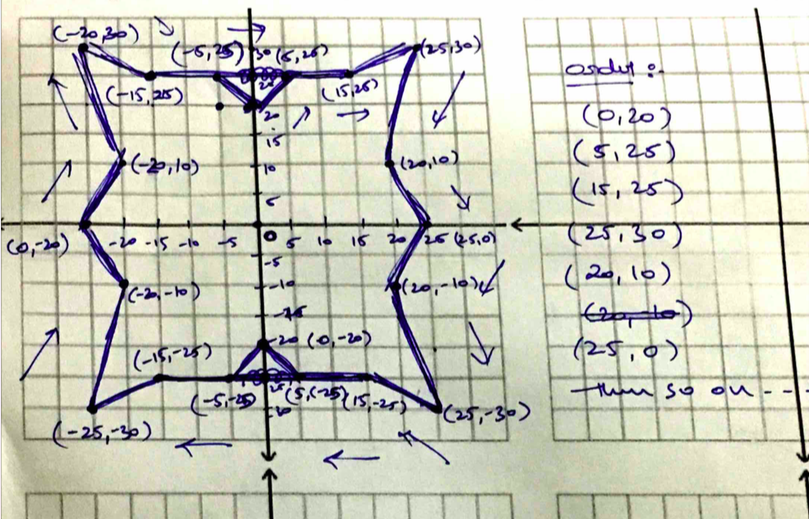 (-20,30)
(-5,25)
30
(5,25)
(25,30)
(-15,25)
25
(15,25)
20
15
(-20,10)
10
(20,10)
5
(0,-20)
-20 -15 -10 -5 0 5 10 15 20 25 (25,0)
-5
(-20,-10)
-10
(20,-10)
-20 (0,-20)
(-15,-25)
(-5,-25)
25
(5,-25)
(15,-25)
30
(-25,-30)
(25,-30)
order :-
(0,20)
(5,25)
(15,25)
(25,30)
(20,10)
(20,-10)
(25,0)
then so on ---